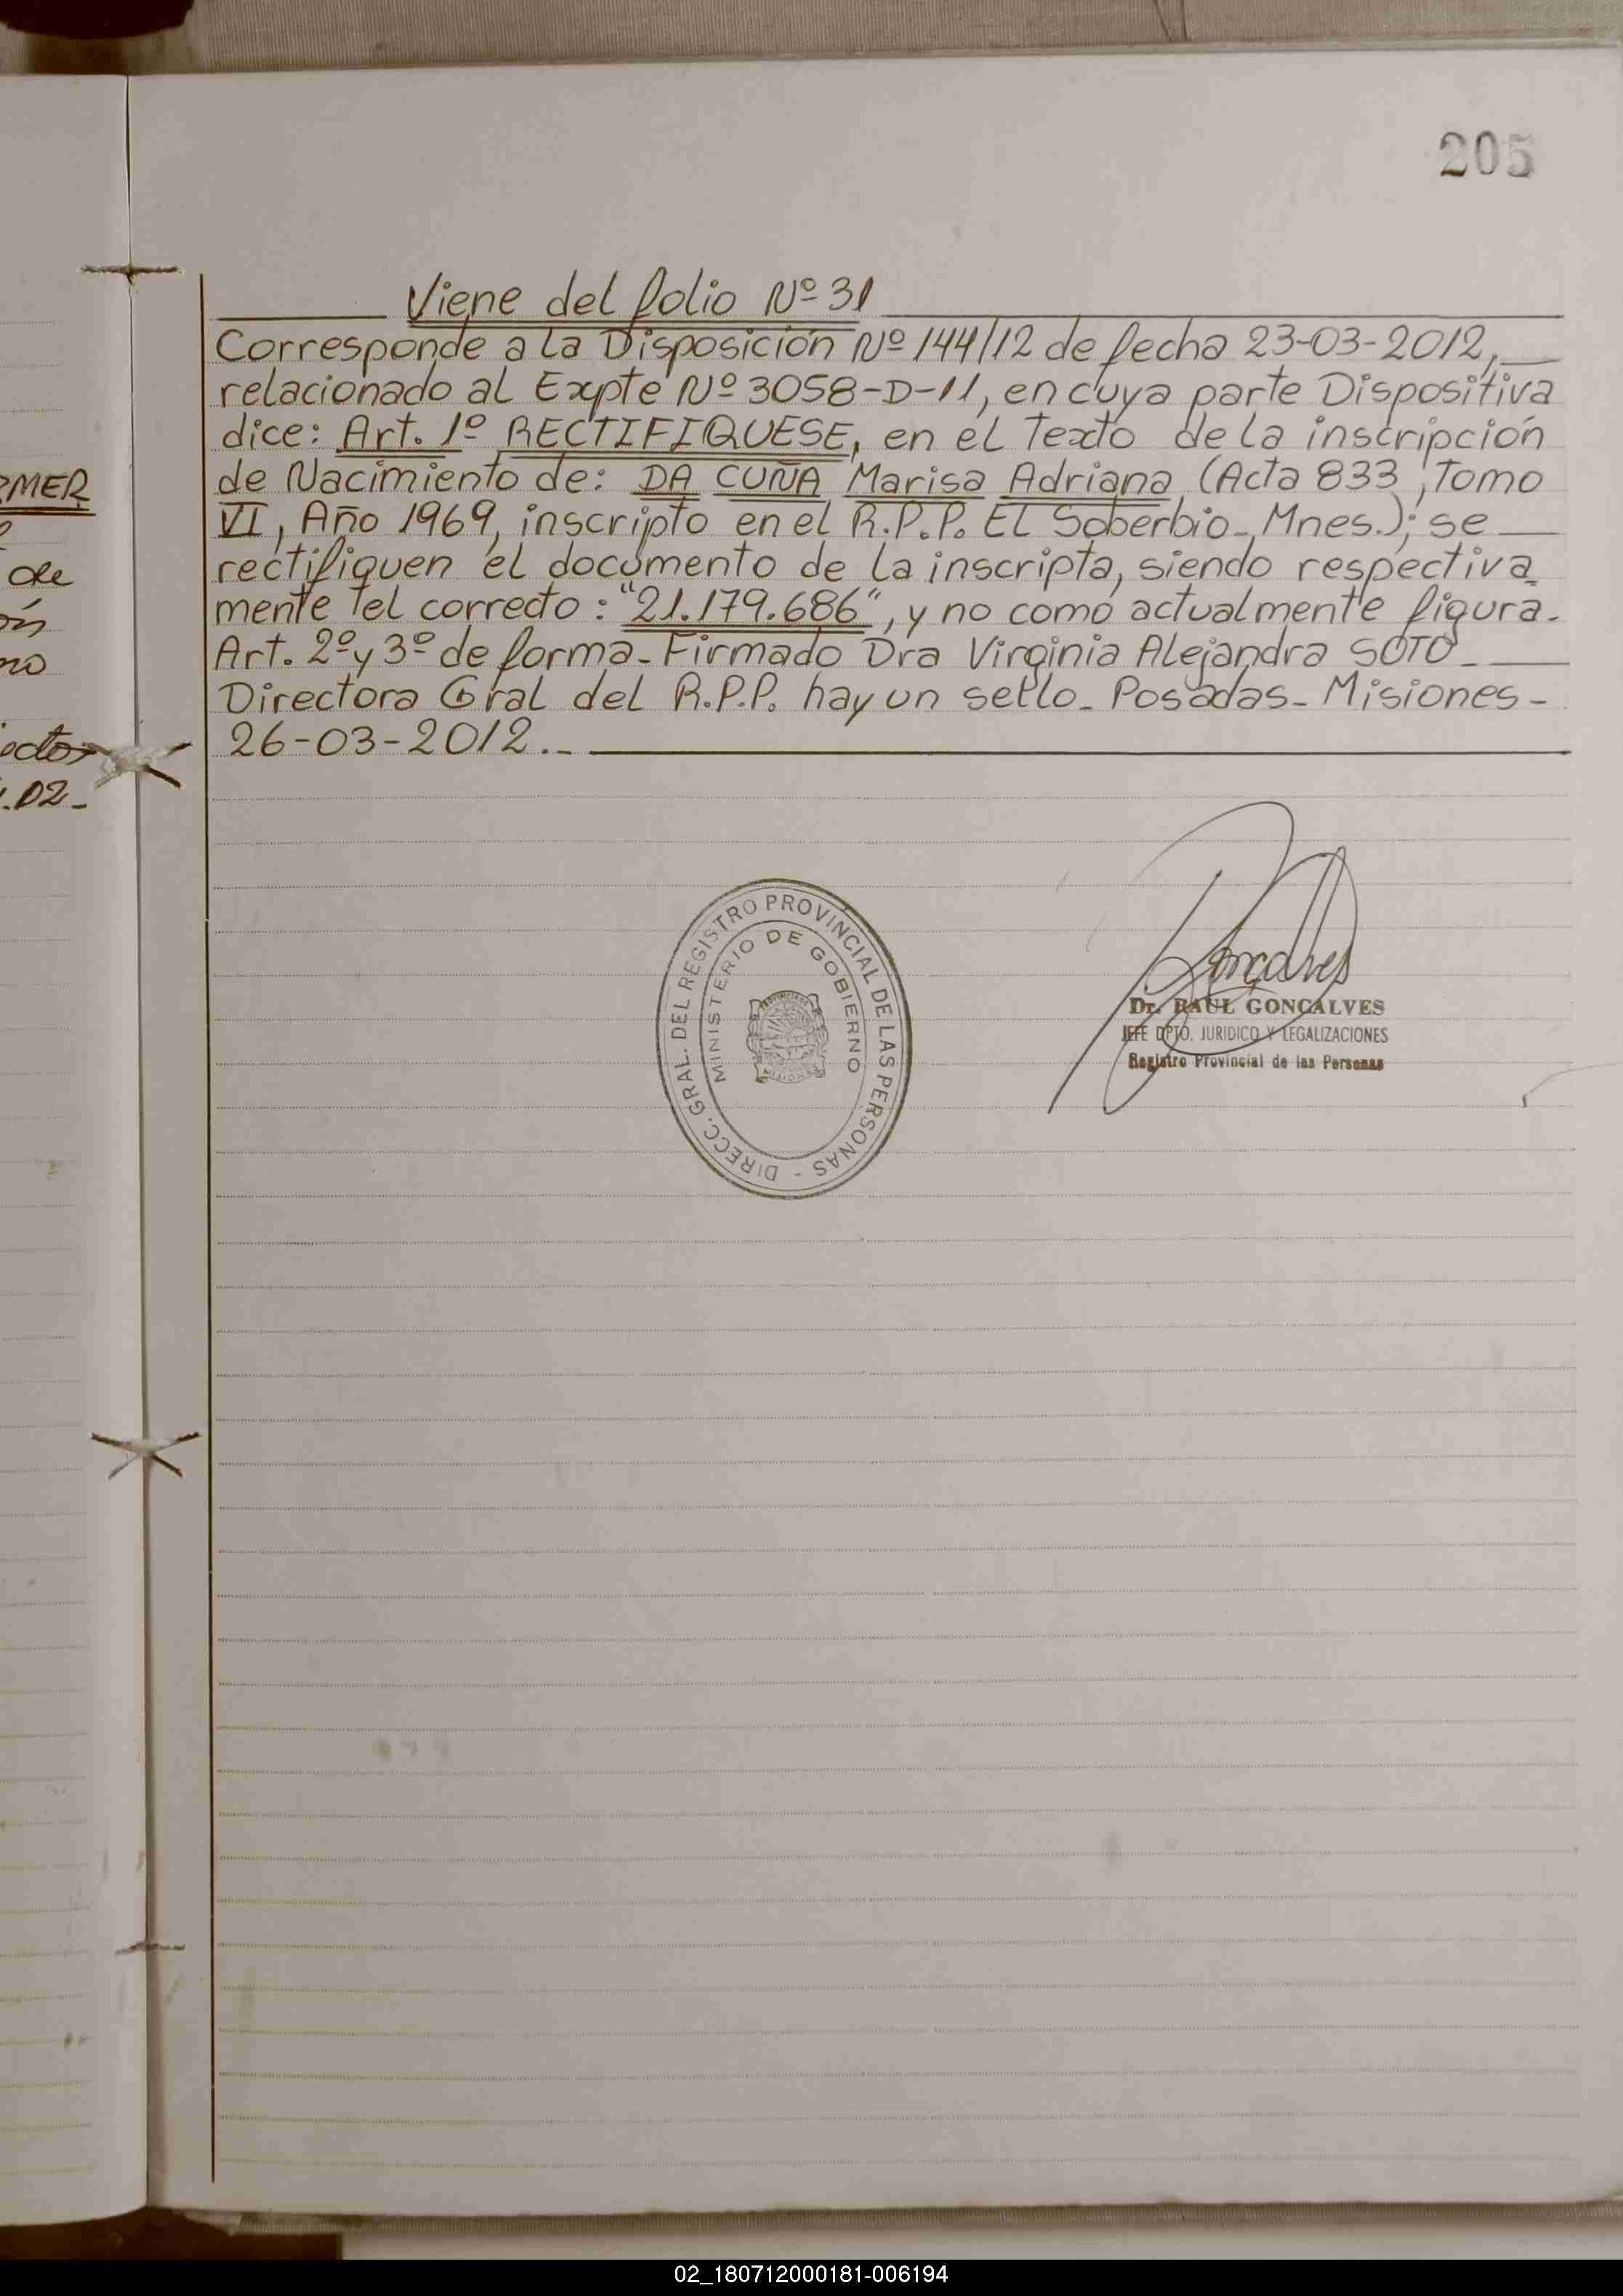 205
Viene del folio Nº 31
Corresponde a la Disposición Nº 144/12 de fecha 23-03-2012,
relacionado al Expte Nº 3058-D-11, en cuya parte Dispositiva
dice: Art. 1º RECTIFIQUESE, en el Texto de la inscripción
de Nacimiento de: DA CUÑA Marisa Adriana (Acta 833, Tomo
VI, Año 1969, inscripto en el R.P.P. EL Soberbio-, Mnes.); se
rectifiquen el documento de la inscripta, siendo respectiva
mente el correcto: "21.179.686", y no como actualmente figura.
Art. 2º y 3º de forma- Firmado Dra Virginia Alejandra SOTO-
Directora Gral del R.P.P. hay un sello- Posadas- Misiones-
26-03-2012.-
RMER
de
no
D2-
DIRECC. GRAL. DEL REGISTRO PROVINCIAL DE LAS PERSONAS -
MINISTERIO DE GOBIERNO
Dr. RAUL GONCALVES
JEFE DPTO. JURIDICO Y LEGALIZACIONES
Registro Provincial de las Personas
02_180712000181-006194